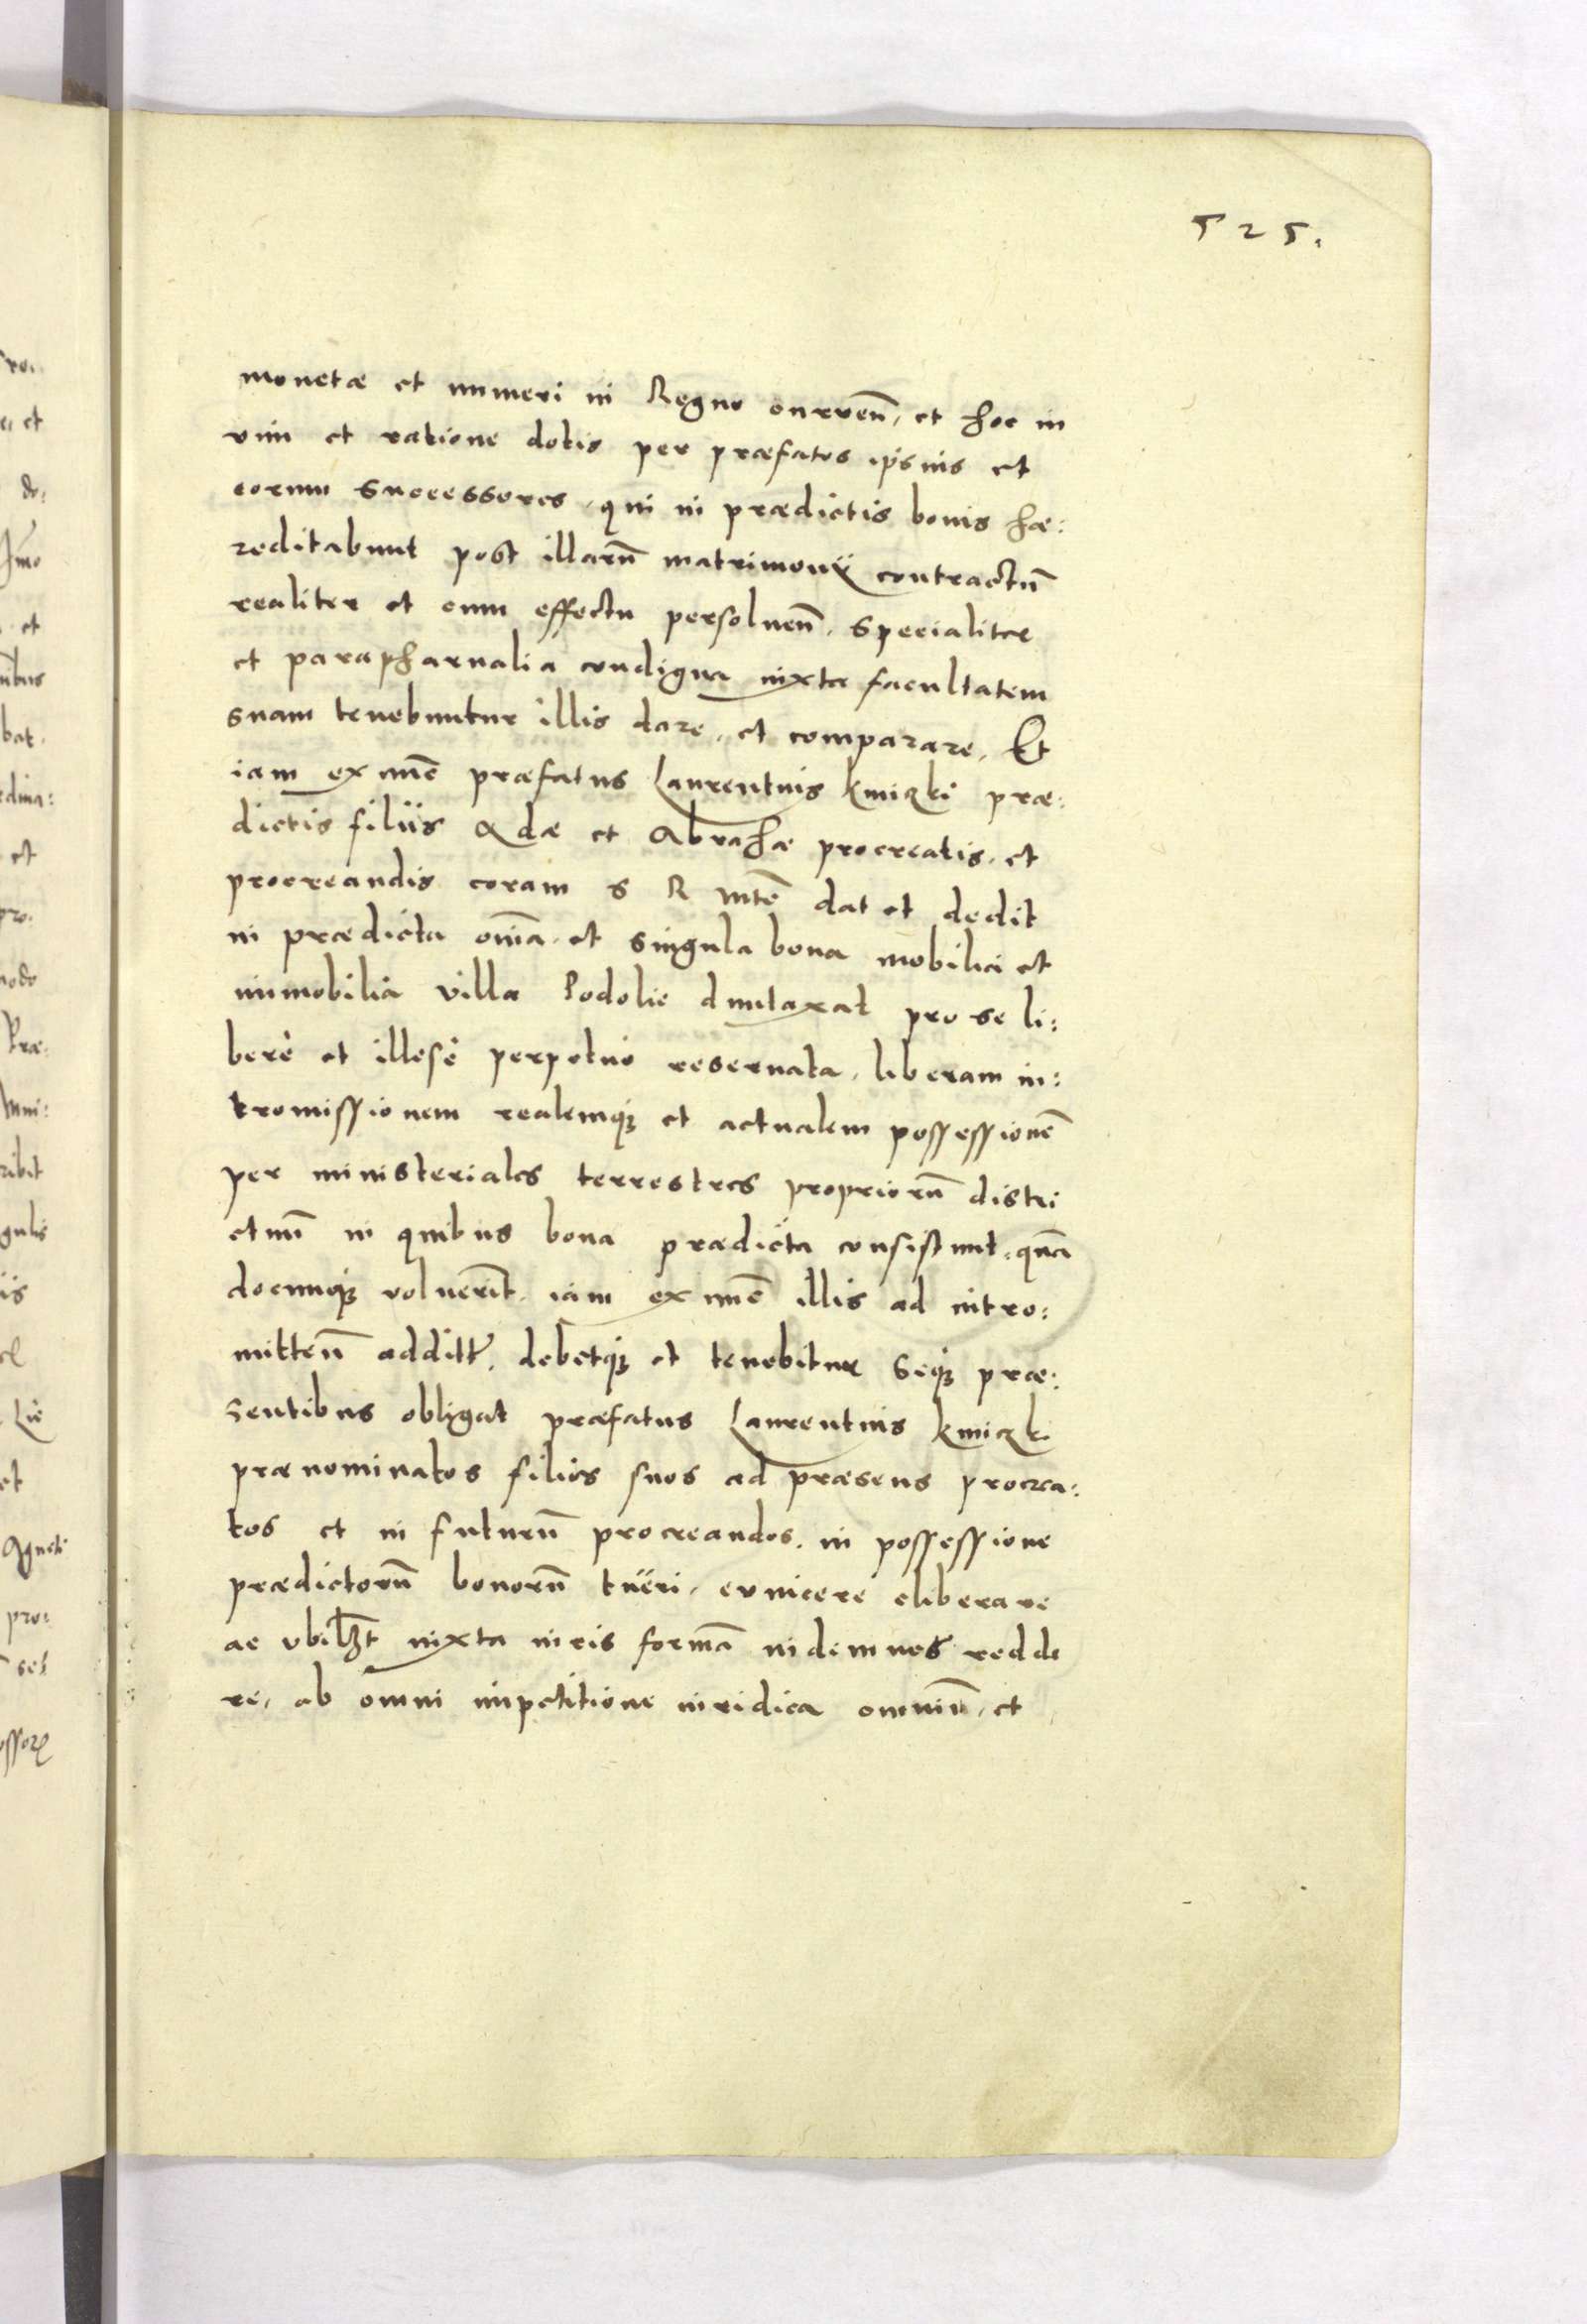 525.
monetæ et numeri in Regno currēn, et hoc in
vim et ratione dotis per præfatos ipsius et
eorum successores, qui in prædictis bonis hæ:
reditabunt post illarū matrimonij contractū
realiter et cum effectu persoluēn. Specialiter
et parapharnalia condigna iuxta facultatem
suam tenebuntur illis dare, et comparare. Et
iam ex nūc præfatus Laurentius Kmiczki præ:
dictis filiis Adæ et Abrahæ procreatis, et
procreandis coram S R Mtē dat et dedit
in prædicta om̄ia, et singula bona mobilia et
immobilia villa Podolie duntaxat pro se li:
berè et illesè perpetuò reseruata, liberam in:
tromissionem realemq; et actualem possessionē
per ministeriales terrestres propriorū distri
ctuū in quibus bona prædicta consistunt, quā
docunq; voluerīt, iam ex nūc illis ad intro:
mittēn additr̄. debetq; et tenebitur seq; præ:
sentibus obligat præfatus Laurentius Kmiczki
prænominatos filios suos ad præsens procrea:
tos et in futurū procreandos, in possessione
prædictorū bonorū tueri, euincere eliberare
ac vbilȝt iuxta iuris formā indemnes redde
re, ab omni impetitione iuridica omniū, et